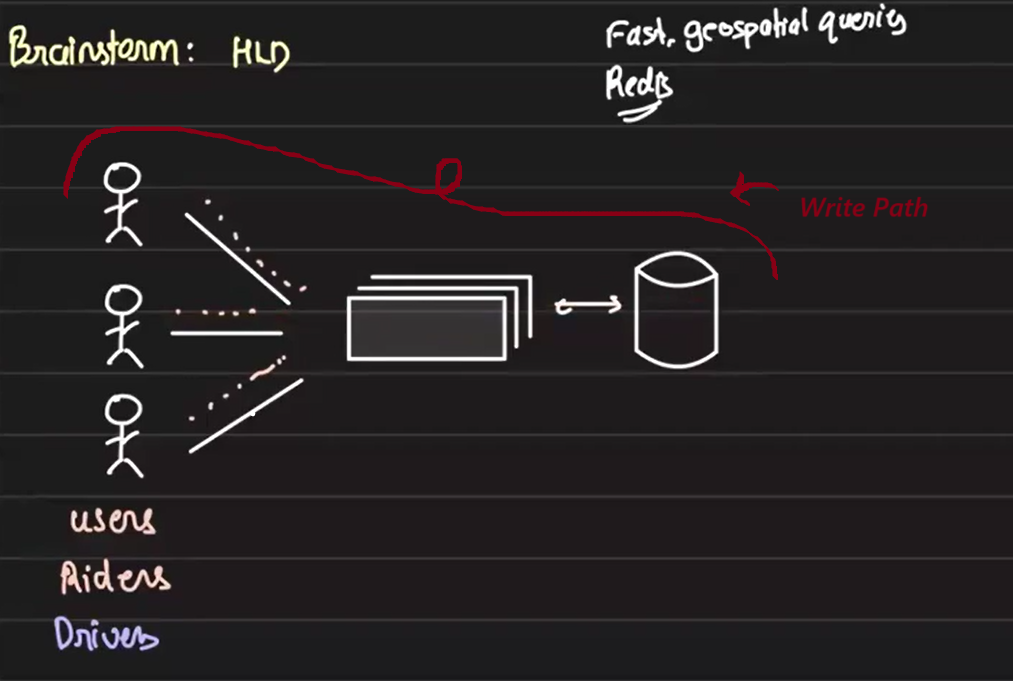 Brainstorm: HLD
Fast, geospatial queries
Redis
Write Path
users
Riders
Drivers